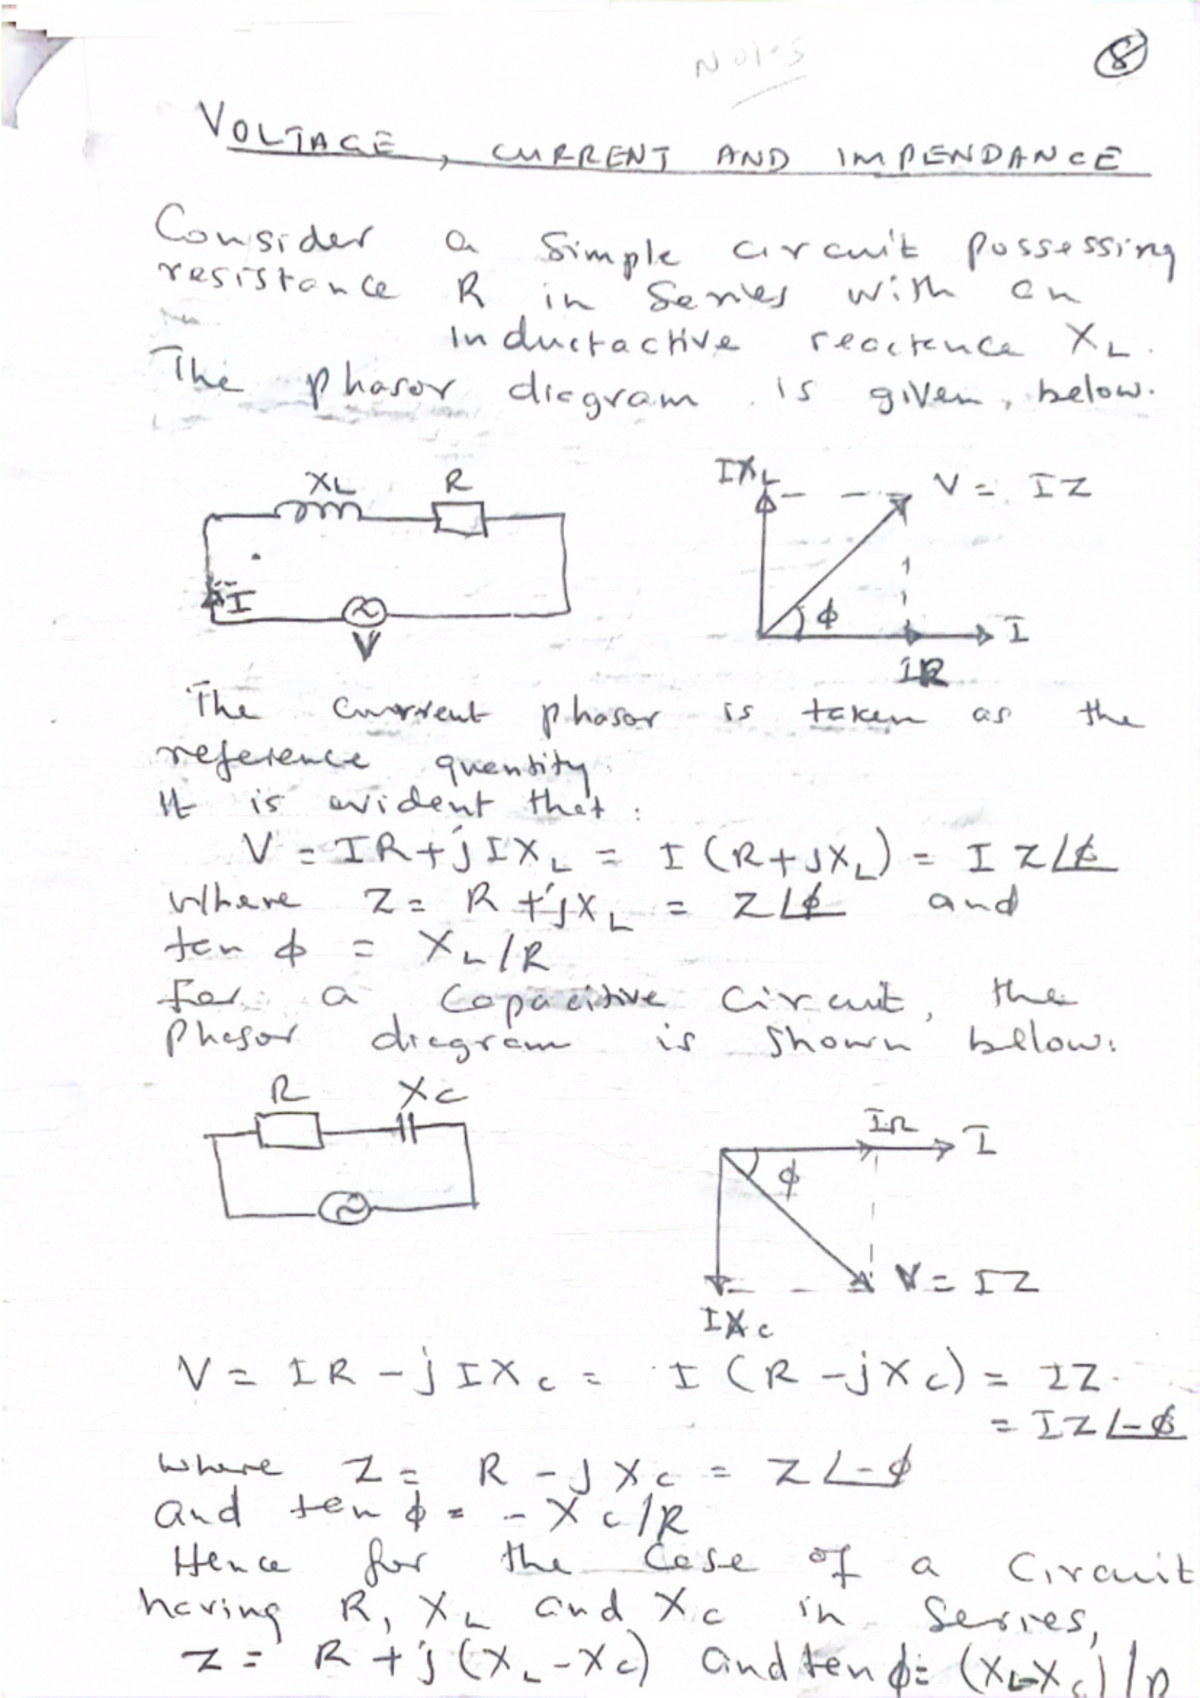 Notes
8
VOLTAGE, CURRENT AND IMPENDANCE
Consider a simple circuit possessing
resistance R in series with an
Inductactive reactence XL.
The phasor diagram is given, below.
XL R
I
V
IXL
V = IZ
ϕ
I
IR
The current phasor is taken as the
reference quentity.
It is evident that:
V = IR + jIXL = I (R+jXL) = I Z∠ϕ
Where Z = R + jXL = Z∠ϕ and
tan ϕ = XL/R
For a capacitive circuit, the
Phasor diagram is shown below:
R XC
IR
I
ϕ
V = IZ
IXC
V = IR - jIXC = I (R - jXC) = IZ
= IZ∠-ϕ
where Z = R - jXC = Z∠-ϕ
and tan ϕ = - XC/R
Hence for the case of a circuit
having R, XL and XC in series,
Z = R + j(XL-XC) and tan ϕ = (XL-XC)/R